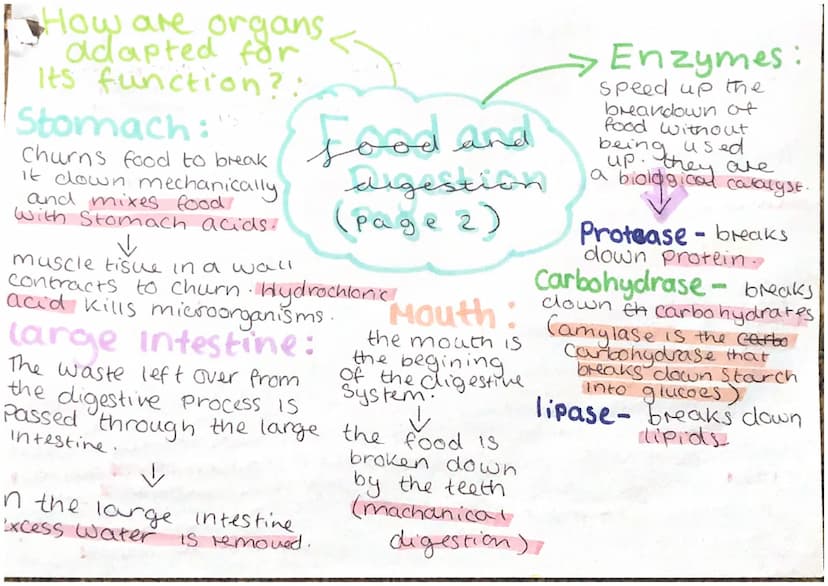 How are organs
adapted for
its function?:
Stomach:
Churns food to break
it down mechanically
and mixes food
with stomach acids.
muscle tissue in a wall
contracts to churn. Hydrochloric
acid kills microorganisms.
Large Intestine:
The waste left over from
the digestive process is
passed through the large
intestine.
n the large intestine
xcess water is removed.
Food and
digestion
(page 2)
Mouth:
the mouth is
the begining
of the digestive
system.
the food is
broken down
by the teeth
(machanical
digestion)
Enzymes:
speed up the
breakdown of
food without
being used
up. they are
a biological catalyst.
Protease - breaks
down protein.
Carbohydrase - breaks
down th carbohydrates
(amylase is the carbo
carbohydrase that
breaks down starch
into glucoes)
lipase - breaks down
lipids.